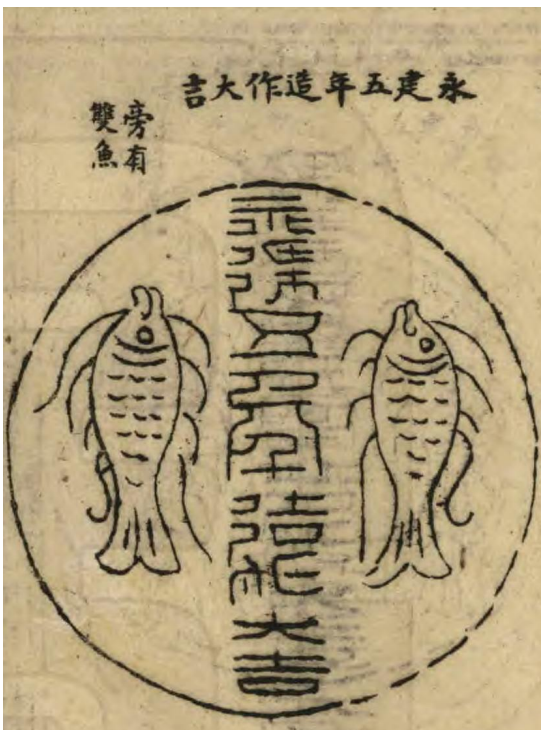 永建五年造作大吉
旁有
雙魚
永建五年造作大吉